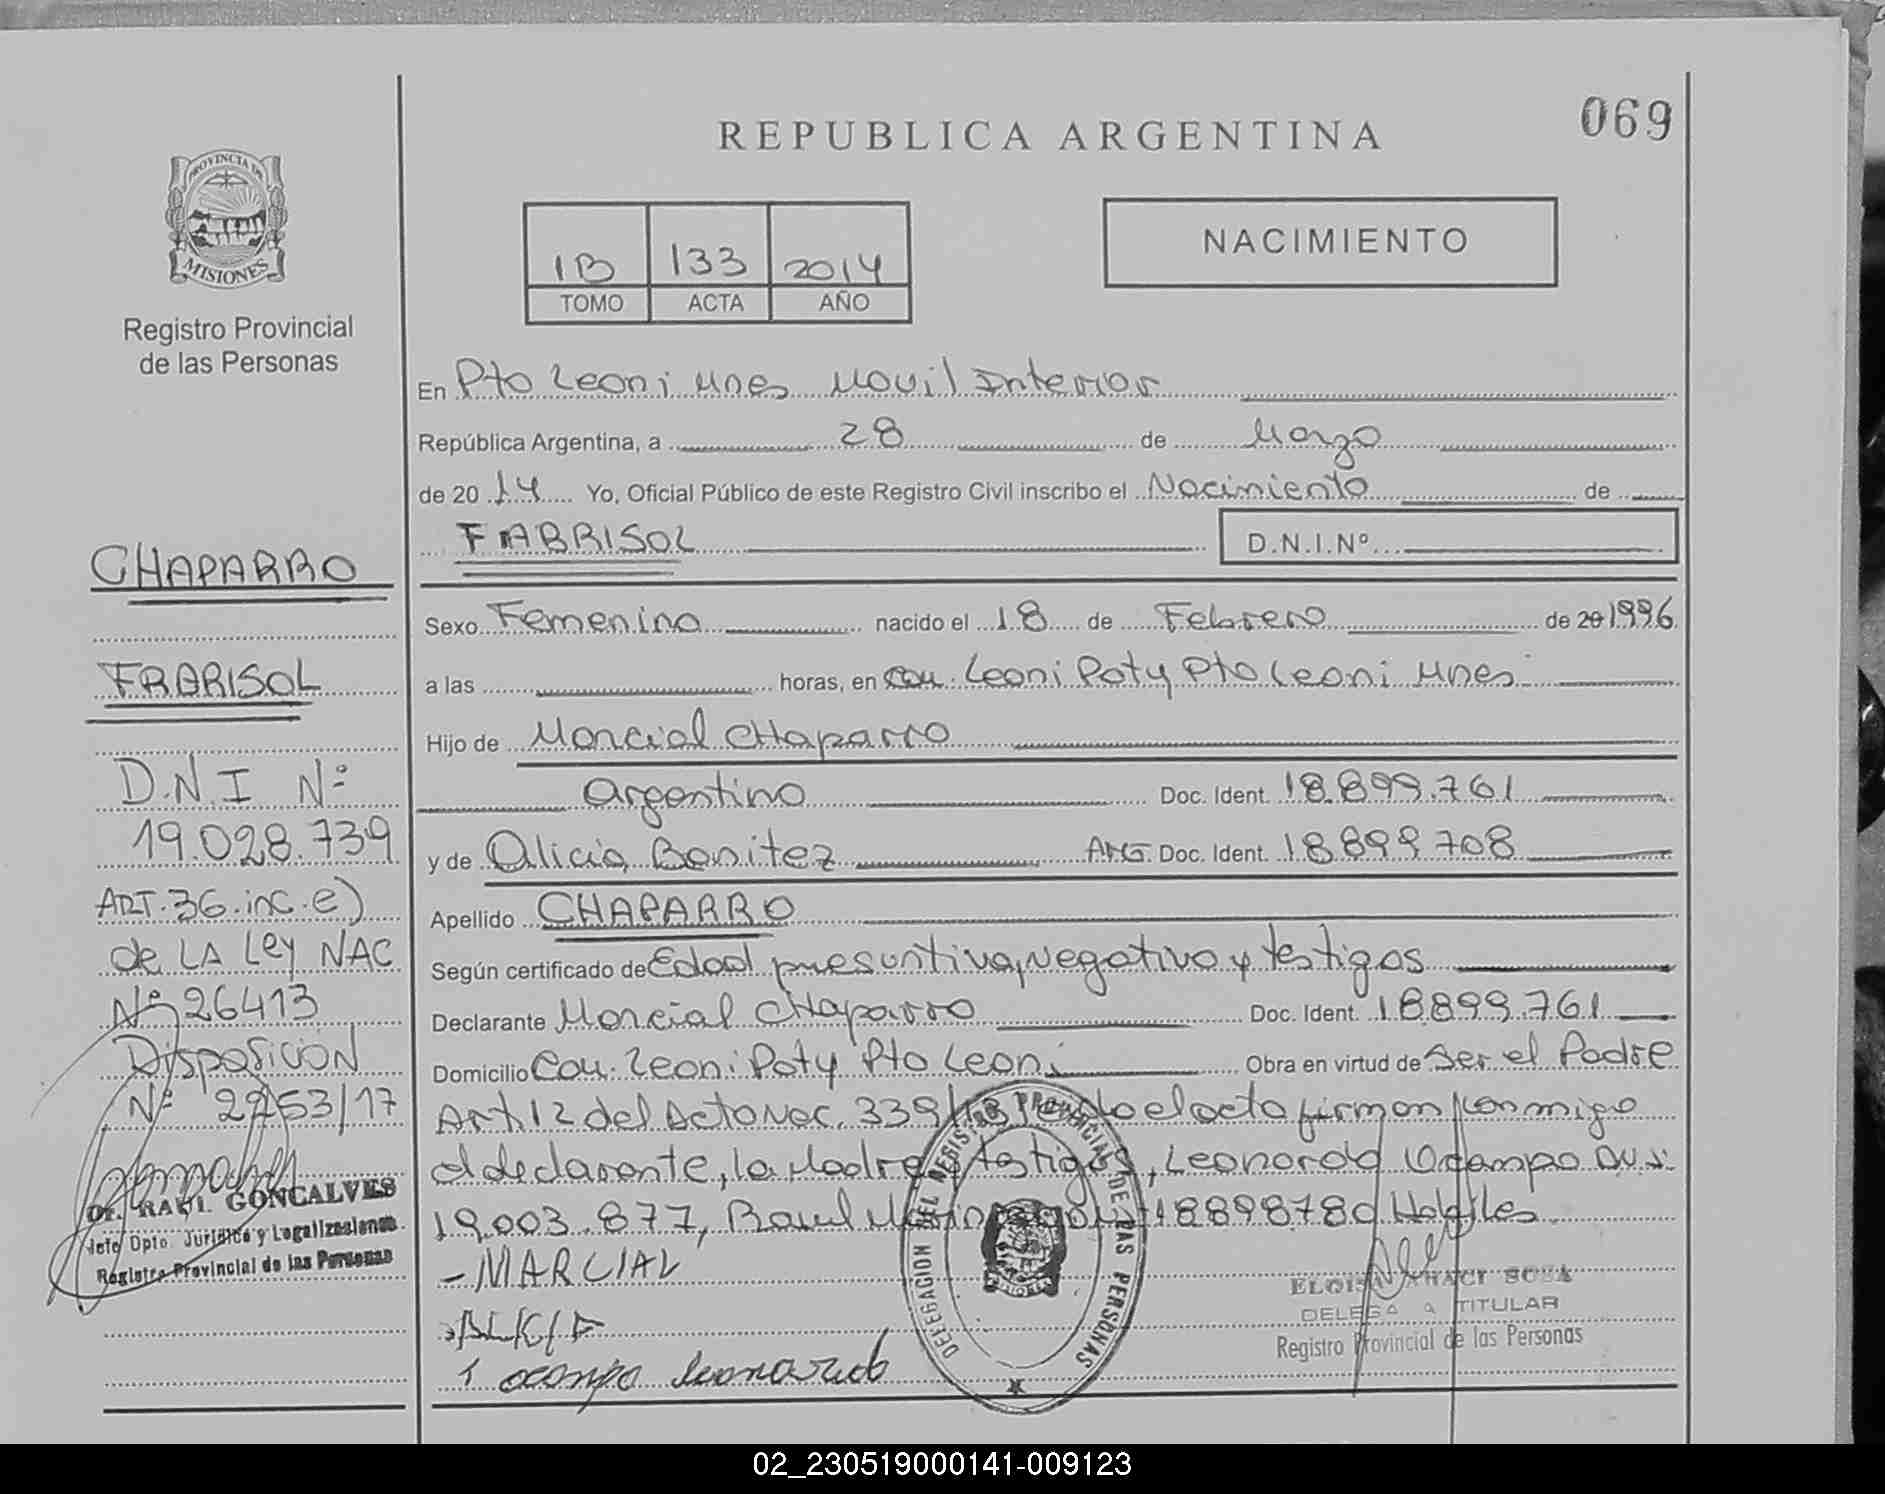 069
REPUBLICA ARGENTINA
PROVINCIA DE
MISIONES
Registro Provincial
de las Personas
1B 133 2014
TOMO ACTA AÑO
NACIMIENTO
En Pto Leoni Mnes Movil Interior
República Argentina, a 28 de Marzo
de 2014 Yo, Oficial Público de este Registro Civil inscribo el Nacimiento de
FABRISOL D.N.I.Nº
Sexo Femenino nacido el 18 de Febrero de 20 1996
a las horas, en Com. Leoni Poty Pto Leoni Mnes
Hijo de Marcial CHaparro
Argentino Doc. Ident. 18.899.761
y de Alicia Benitez ARG. Doc. Ident. 18899708
Apellido CHAPARRO
Según certificado de Edad presuntiva, negativo y testigos
Declarante Marcial CHaparro Doc. Ident. 18.899.761
Domicilio Com. Leoni Poty Pto Leoni Obra en virtud de Ser el Padre
Art. 12 del Acto Nac. 339/13 el acta firman conmigo
el declarante, la Madre y testigos, Leonardo Ocampo
19.003.877, Raul 18898780 Habiles
- MARCIAL
ocampo leonardo
CHAPARRO
FABRISOL
D.N.I Nº
19.028.739
ART. 36. inc. e)
de LA Ley NAC
Nº 26413
DISPOSICION
Nº 2253/17
Of. RAUL GONCALVES
Jefe Dpto. Jurídico y Legalizaciones
Registro Provincial de las Personas
DELEGACION DEL REGISTRO PROVINCIAL DE LAS PERSONAS
ELOISA SOSA
DELEGADA TITULAR
Registro Provincial de las Personas
02_230519000141-009123